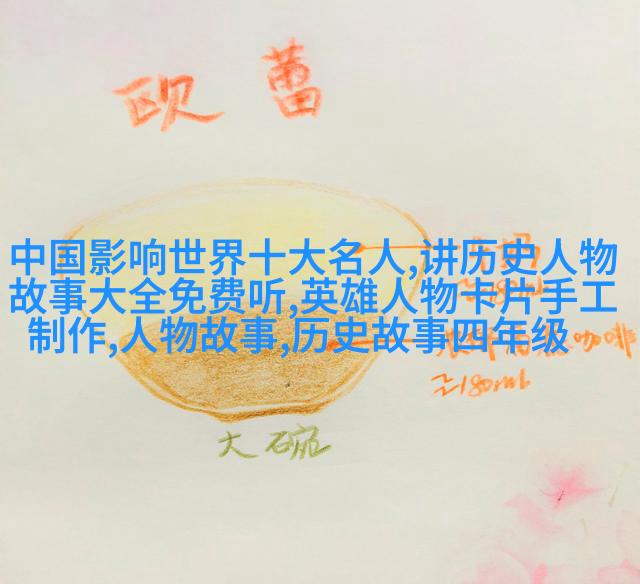 欧蕾
中国影响世界十大名人,讲历史人物
故事大全免费听,英雄人物卡片手工
制作,人物故事,历史故事四年级
咖啡
≥180ml
大碗